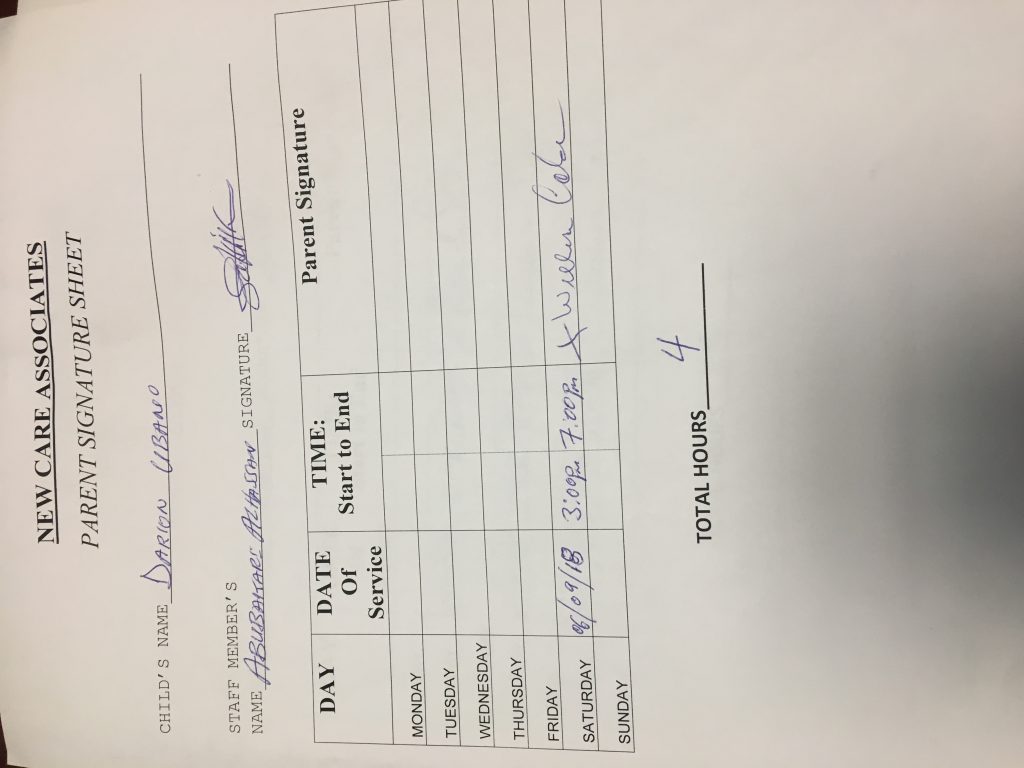 NEW CARE ASSOCIATES
PARENT SIGNATURE SHEET
CHILD'S NAME DARION UBANO
STAFF MEMBER'S
NAME ABUBAKARI ALHASSAN SIGNATURE
DAY DATE Of Service TIME: Start to End Parent Signature
MONDAY
TUESDAY
WEDNESDAY
THURSDAY
FRIDAY
SATURDAY 06/09/18 3:00pm 7:00pm X
SUNDAY
TOTAL HOURS 4